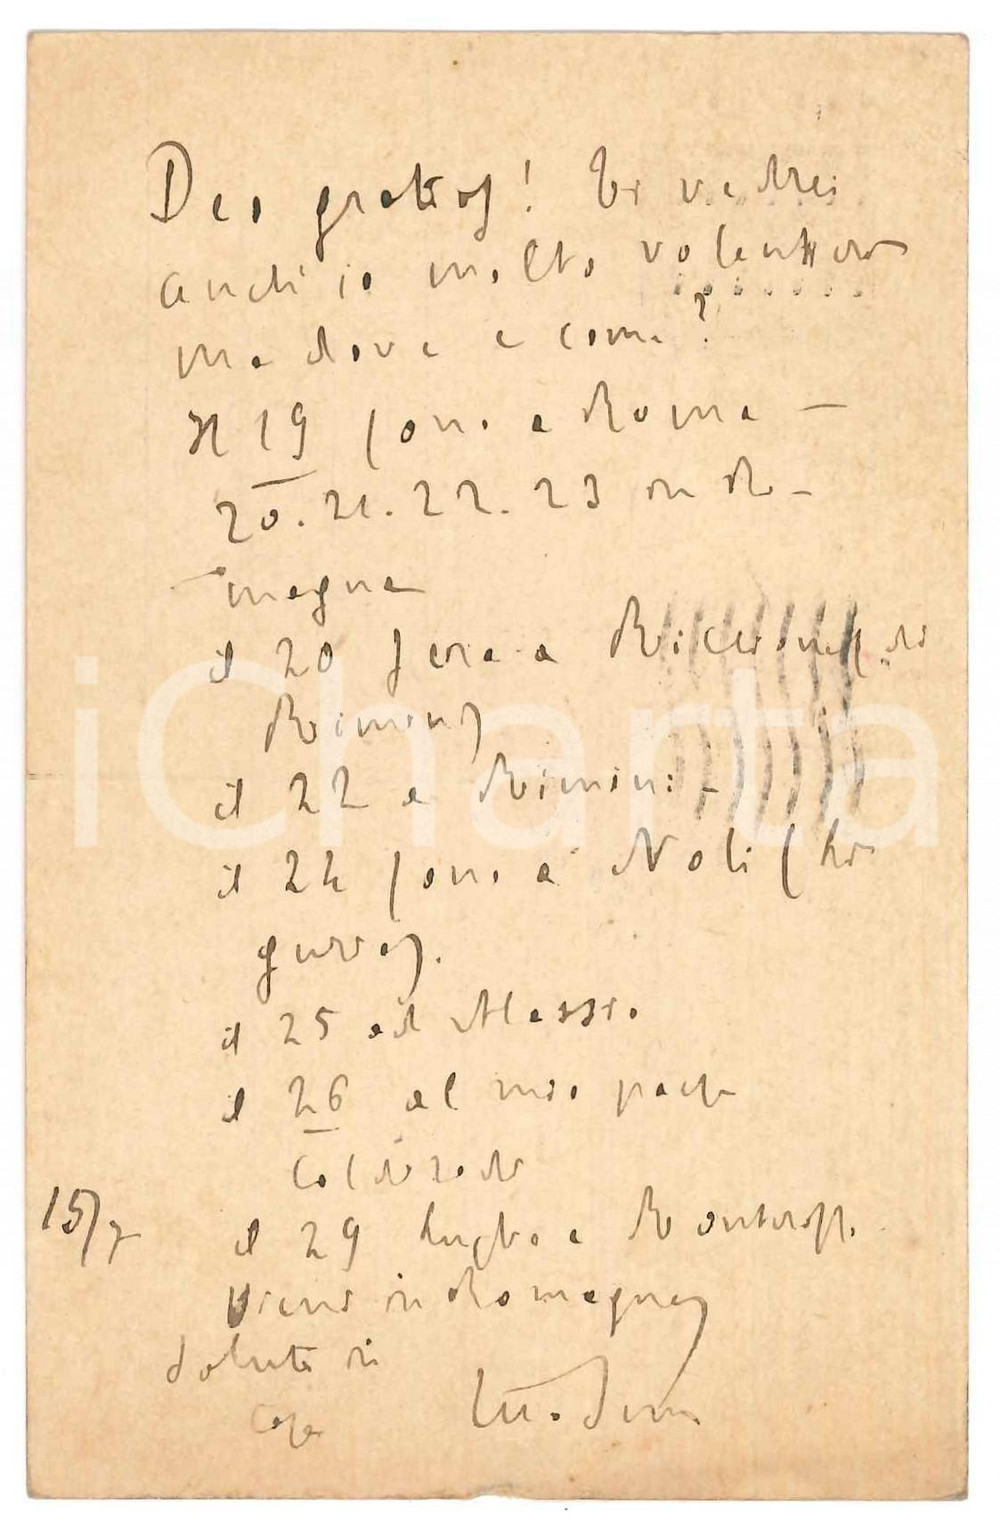 Deo gratias! Ti vedrei
anch'io molto volentieri
ma dove e come?
Il 19 sono a Roma —
20. 21. 22. 23 in Ro-
magna
il 20 sera a
Rimini)
il 22 a Rimini -
il 24 sono a Noli (Li
guria).
il 25 ad Alassio
il 26 al mio paese
il 29 luglio a
15/7
Vieni in Romagna
Saluti in
casa
iCharta